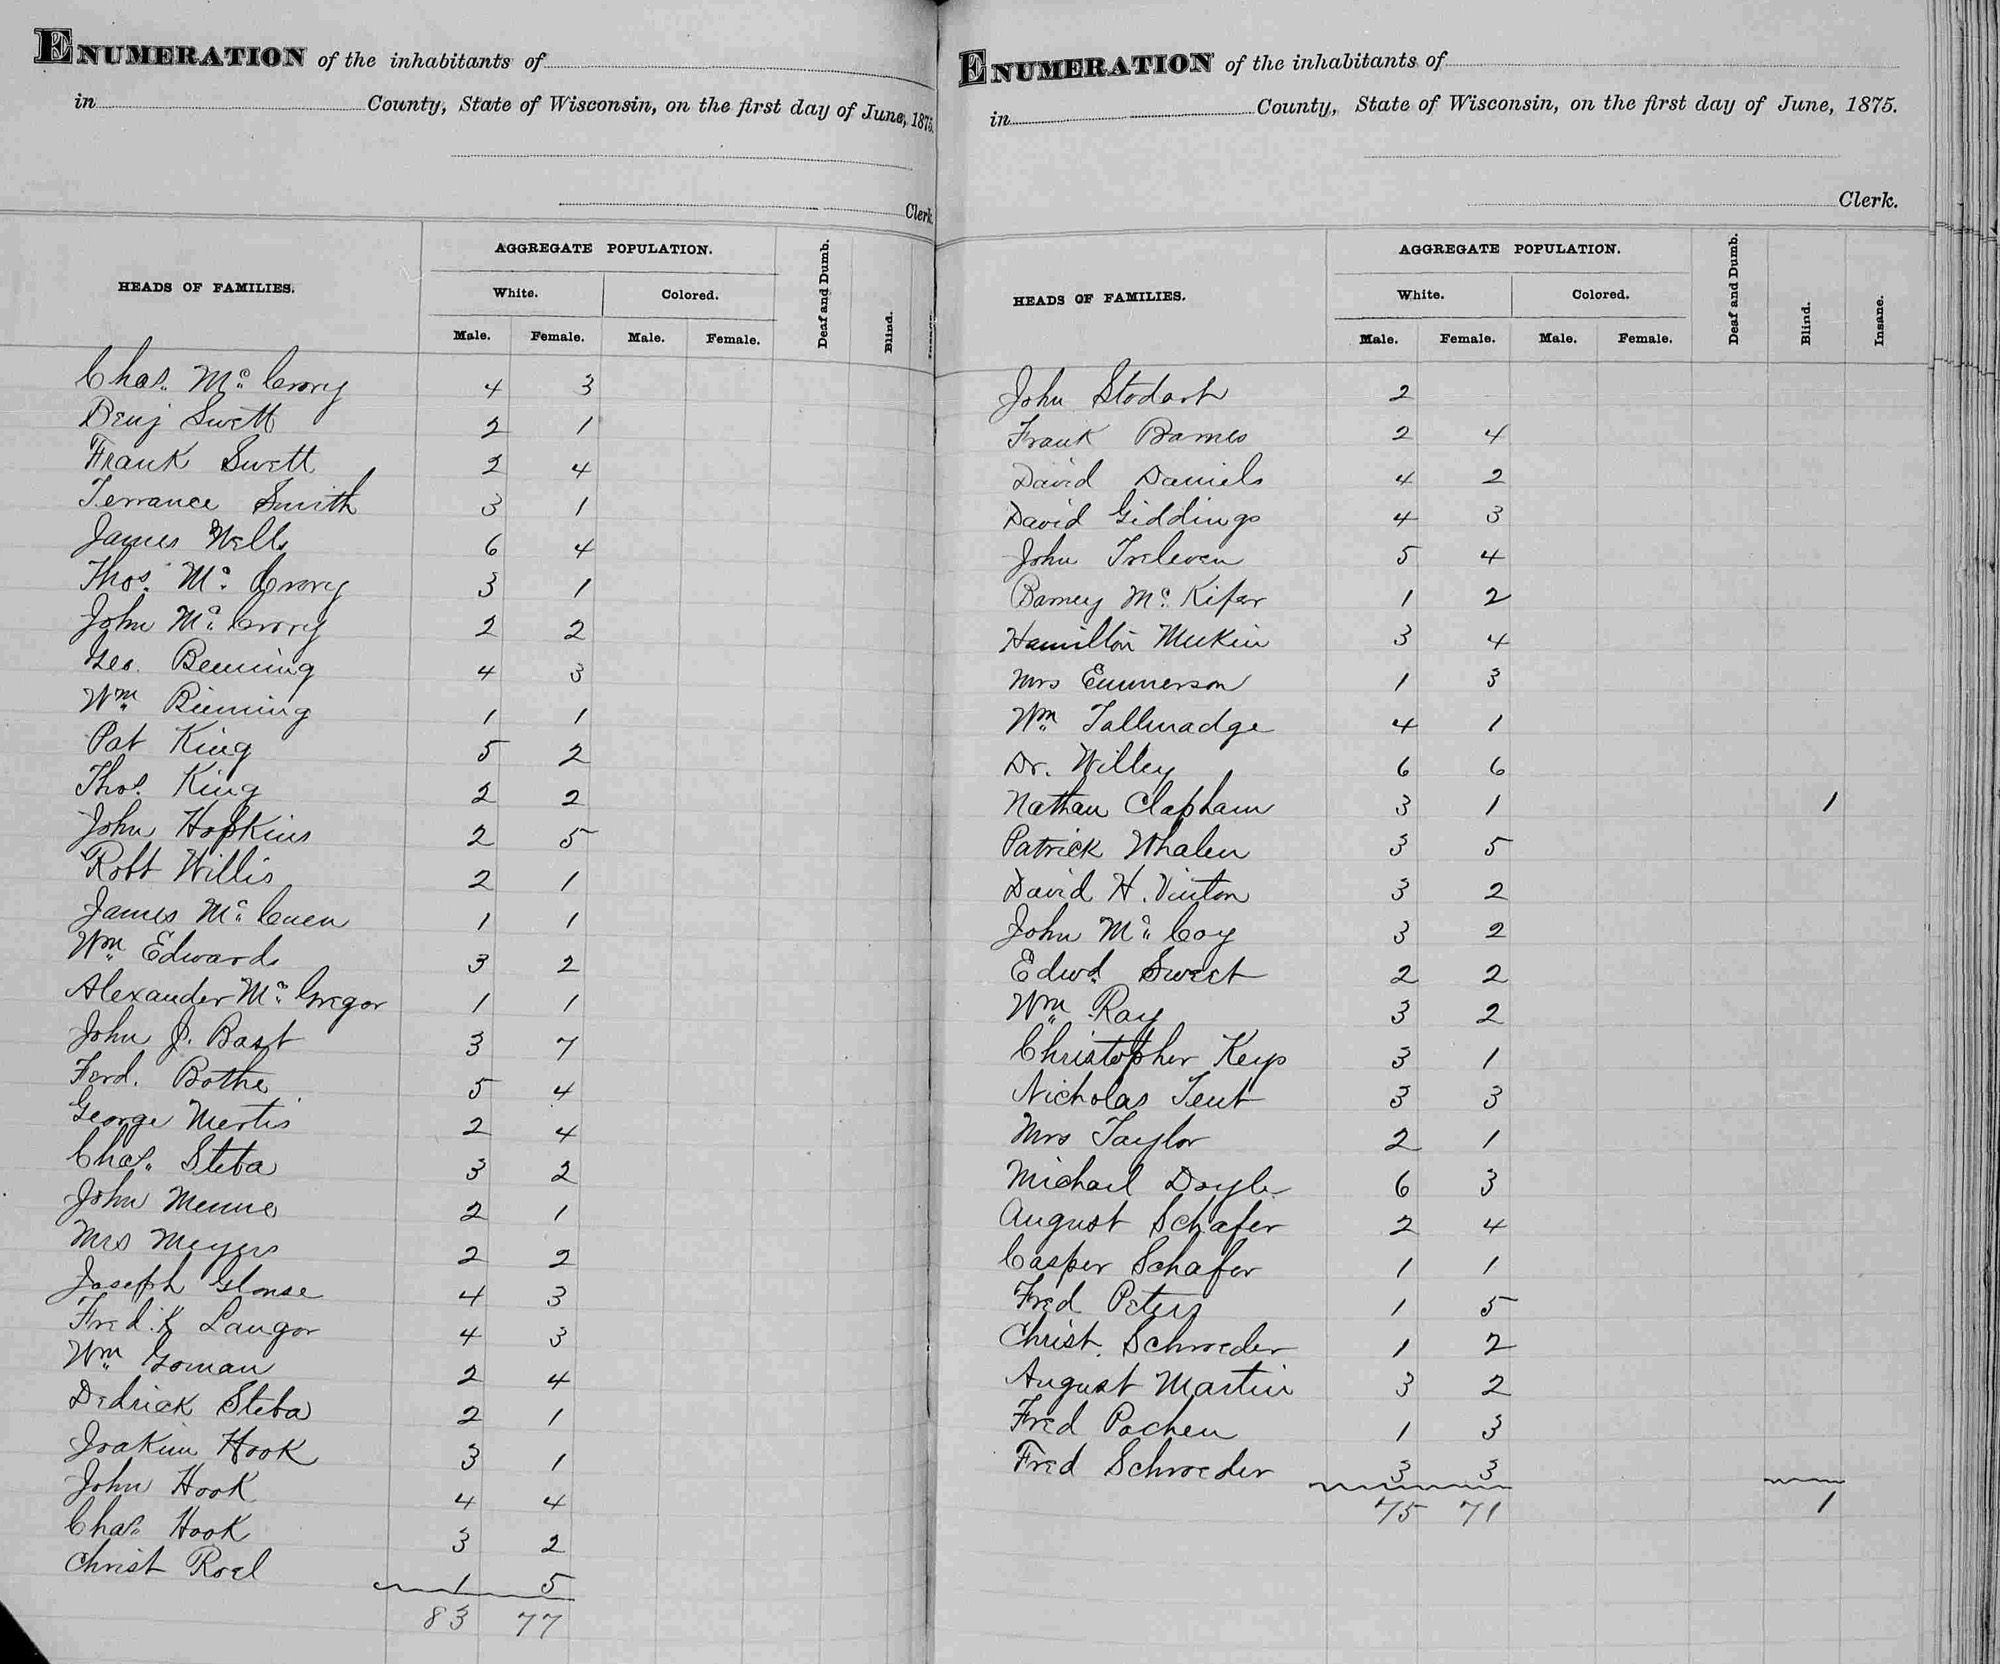 ENUMERATION of the inhabitants of
in County, State of Wisconsin, on the first day of June, 1875.
Clerk.
HEADS OF FAMILIES.
AGGREGATE POPULATION.
White. Colored.
Male. Female. Male. Female. Deaf and Dumb. Blind.
Chas. Mc. Crory 4 3
Benj Swett 2 1
Frank Swett 2 4
Terrance Smith 3 1
James Wells 6 4
Thos. Mc. Crory 3 1
John Mc. Crory 2 2
Geo. Benning 4 3
Wm. Binning 1 1
Pat King 5 2
Thos. King 2 2
John Hopkins 2 5
Robt Willis 2 1
James Mc. Cuen 1 1
Wm. Edwards 3 2
Alexander Mc. Gregor 1 1
John J. Bast 3 7
Ferd. Bothe 5 4
George Mertis 2 4
Chas. Steba 3 2
John Menne 2 1
Mrs Meyers 2 2
Joseph Glonse 4 3
Fred.k Langor 4 3
Wm. Goman 2 4
Dedrick Steba 2 1
Joakim Hook 3 1
John Hook 4 4
Chas. Hook 3 2
Christ Roel 1 5
83 77
ENUMERATION of the inhabitants of
in County, State of Wisconsin, on the first day of June, 1875.
Clerk.
HEADS OF FAMILIES.
AGGREGATE POPULATION.
White. Colored.
Male. Female. Male. Female. Deaf and Dumb. Blind. Insane.
John Stodart 2
Frank Barnes 2 4
David Daniels 4 2
David Giddings 4 3
John Treleven 5 4
Barney Mc. Kifer 1 2
Hamilton Meekin 3 4
Mrs Emmerson 1 3
Wm. Tallmadge 4 1
Dr. Willey 6 6
Nathan Clapham 3 1 1
Patrick Whalen 3 5
David H. Vinton 3 2
John Mc. Coy 3 2
Edwd. Sweet 2 2
Wm. Ray 3 2
Christopher Keys 3 1
Nicholas Tent 3 3
Mrs Taylor 2 1
Michael Doyle 6 3
August Schafer 2 4
Casper Schafer 1 1
Fred Peters 1 5
Christ. Schroeder 1 2
August Martin 3 2
Fred Pochen 1 3
Fred Schroeder 3 3
75 71 1